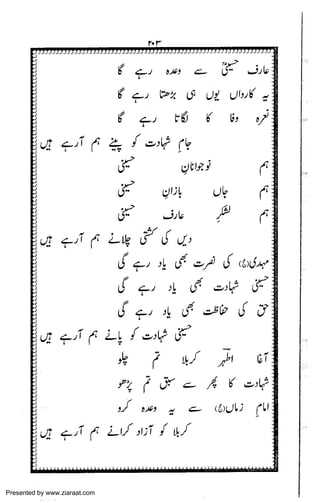 ۲۰۳
عارف حسینیؒ سے وعدہ رہے گا
یہ کارواں یوں ہی بڑھتا رہے گا
نعرہ وفا کا لگاتا رہے گا
جامِ شہادت کو پینے ہم آرہے ہیں
ہم نوجوانانِ حسینی
ہم جاں بازانِ حسینی
ہم لشکرِ عارف حسینی
دیں کی کشتی چلانے ہم آرہے ہیں
مہدی(ع) کی نصرت بھی یاد رہے گی
حسینی شہادت بھی یاد رہے گی
حق کی حفاظت بھی یاد رہے گی
حسینی شہادت کو پانے ہم آرہے ہیں
آغا اطہر کربلا تم چلو
شہادت کا پھر سے سبق تم پڑھو
امامِ زماں(ع) سے یہ وعدہ کرو
کربلا کو آزاد کرانے ہم آرہے ہیں
Presented by www.ziaraat.com